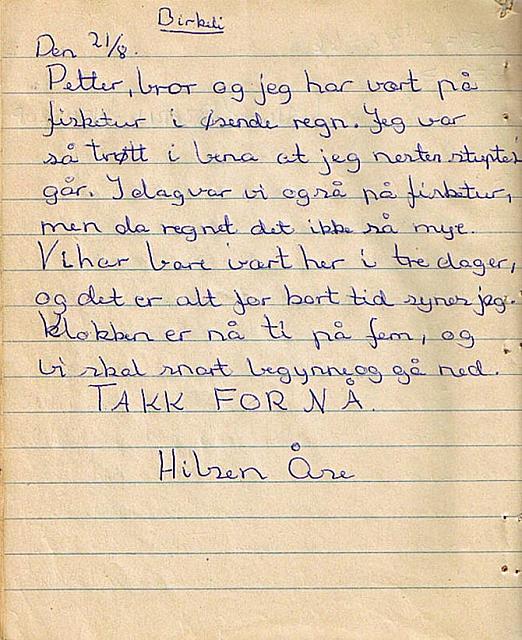 Birkeli
Den 21/8.
Petter, bror og jeg har vært på
fisketur i øsende regn. Jeg var
så trøtt i bena at jeg nesten stupte i
går. I dag var vi også på fisketur,
men da regnet det ikke så mye.
Vi har bare vært her i tre dager,
og det er alt for kort tid synes jeg.
Klokken er nå ti på fem, og
vi skal snart begynne og gå ned.
TAKK FOR NÅ.
Hilsen Åse